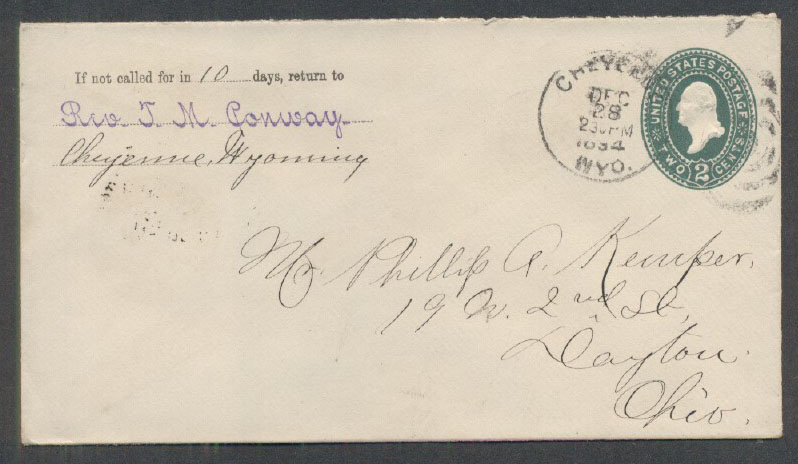 If not called for in 10 days, return to
Rev. T. M. Conway
Cheyenne, Wyoming
CHEYEN
DEC
28
230PM
1894
WYO.
UNITED STATES POSTAGE
TWO 2 CENTS
Mr. Phillip A. Kemper,
19 W. 2nd St,
Dayton
Ohio.